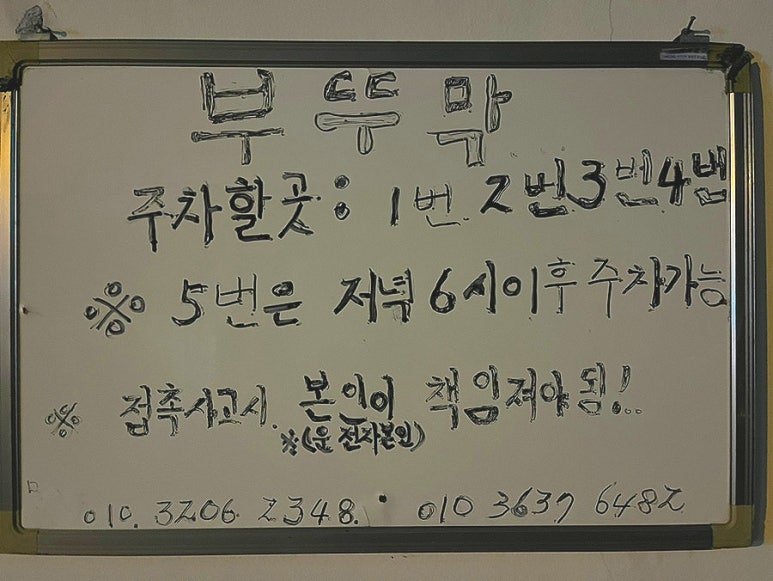 부뚜막
주차할곳: 1번 2번 3번 4번
※ 5번은 저녁 6시이후 주차가능
※ 접촉사고시. 본인이 책임져야됨!..
※(운전자본인)
010. 3206 2348. 010 3637 6482